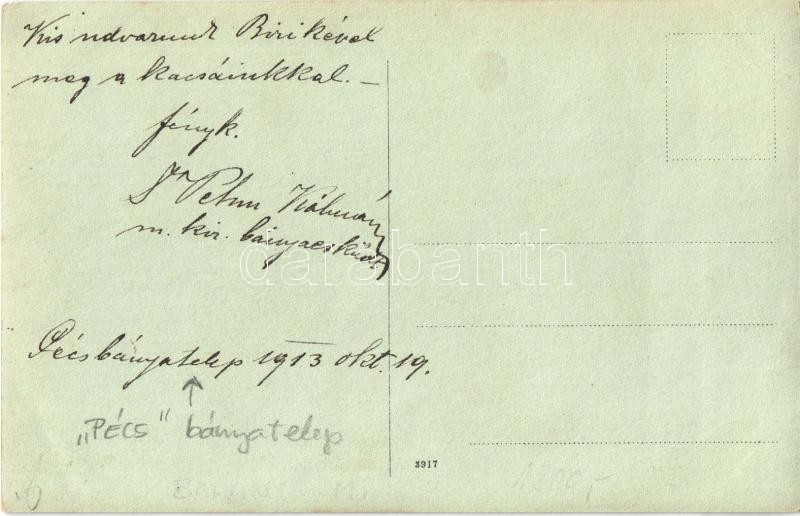 Kis udvarunk Birikével
meg a kacsáinkkal. —
fényk.
Dr Kálmán
m. kir. bányaesküdt
darabanth
Pécsbányatelep 1913 okt. 19.
„PÉCS" bányatelep
3917
1200,-